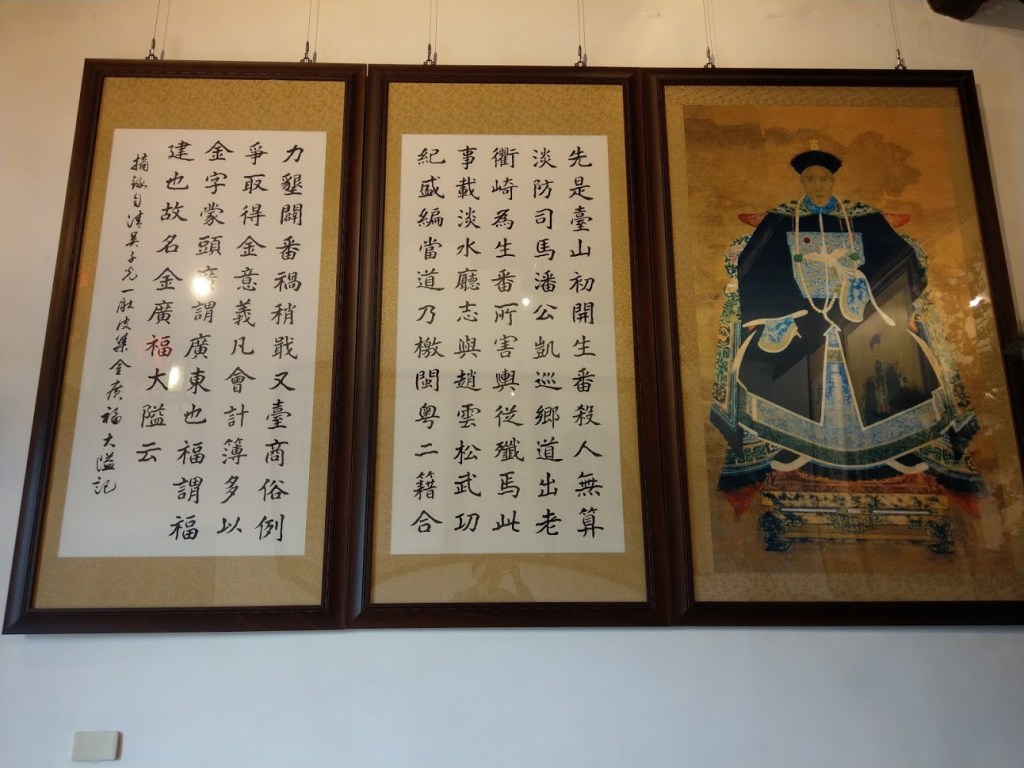 先是臺山初開生番殺人無算
淡防司馬潘公凱巡鄉道出老
衢崎為生番所害輿從殲焉此
事載淡水廳志與趙雲松武功
紀盛編當道乃檄閩粵二籍合
力墾闢番禍稍戢又臺商俗例
爭取得金意義凡會計簿多以
金字蒙頭廣謂廣東也福謂福
建也故名金廣福大隘云
摘錄自清吳子光一肚皮集金廣福大隘記